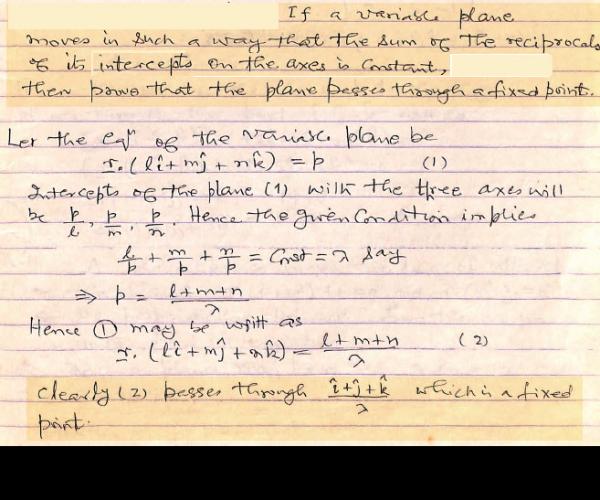 If a variable plane
moves in such a way that the sum of the reciprocals
of its intercepts on the axes is constant,
then prove that the plane passes through a fixed point.
Let the eqn of the variable plane be
r. (lî + mĵ + nk̂) = p (1)
Intercepts of the plane (1) with the three axes will
be p/l, p/m, p/n. Hence the given condition implies
l/p + m/p + n/p = Const = λ say
⇒ p = (l+m+n)/λ
Hence ① may be writt as
r. (lî + mĵ + nk̂) = (l+m+n)/λ (2)
Clearly (2) passes through (î+ĵ+k̂)/λ which is a fixed
point.